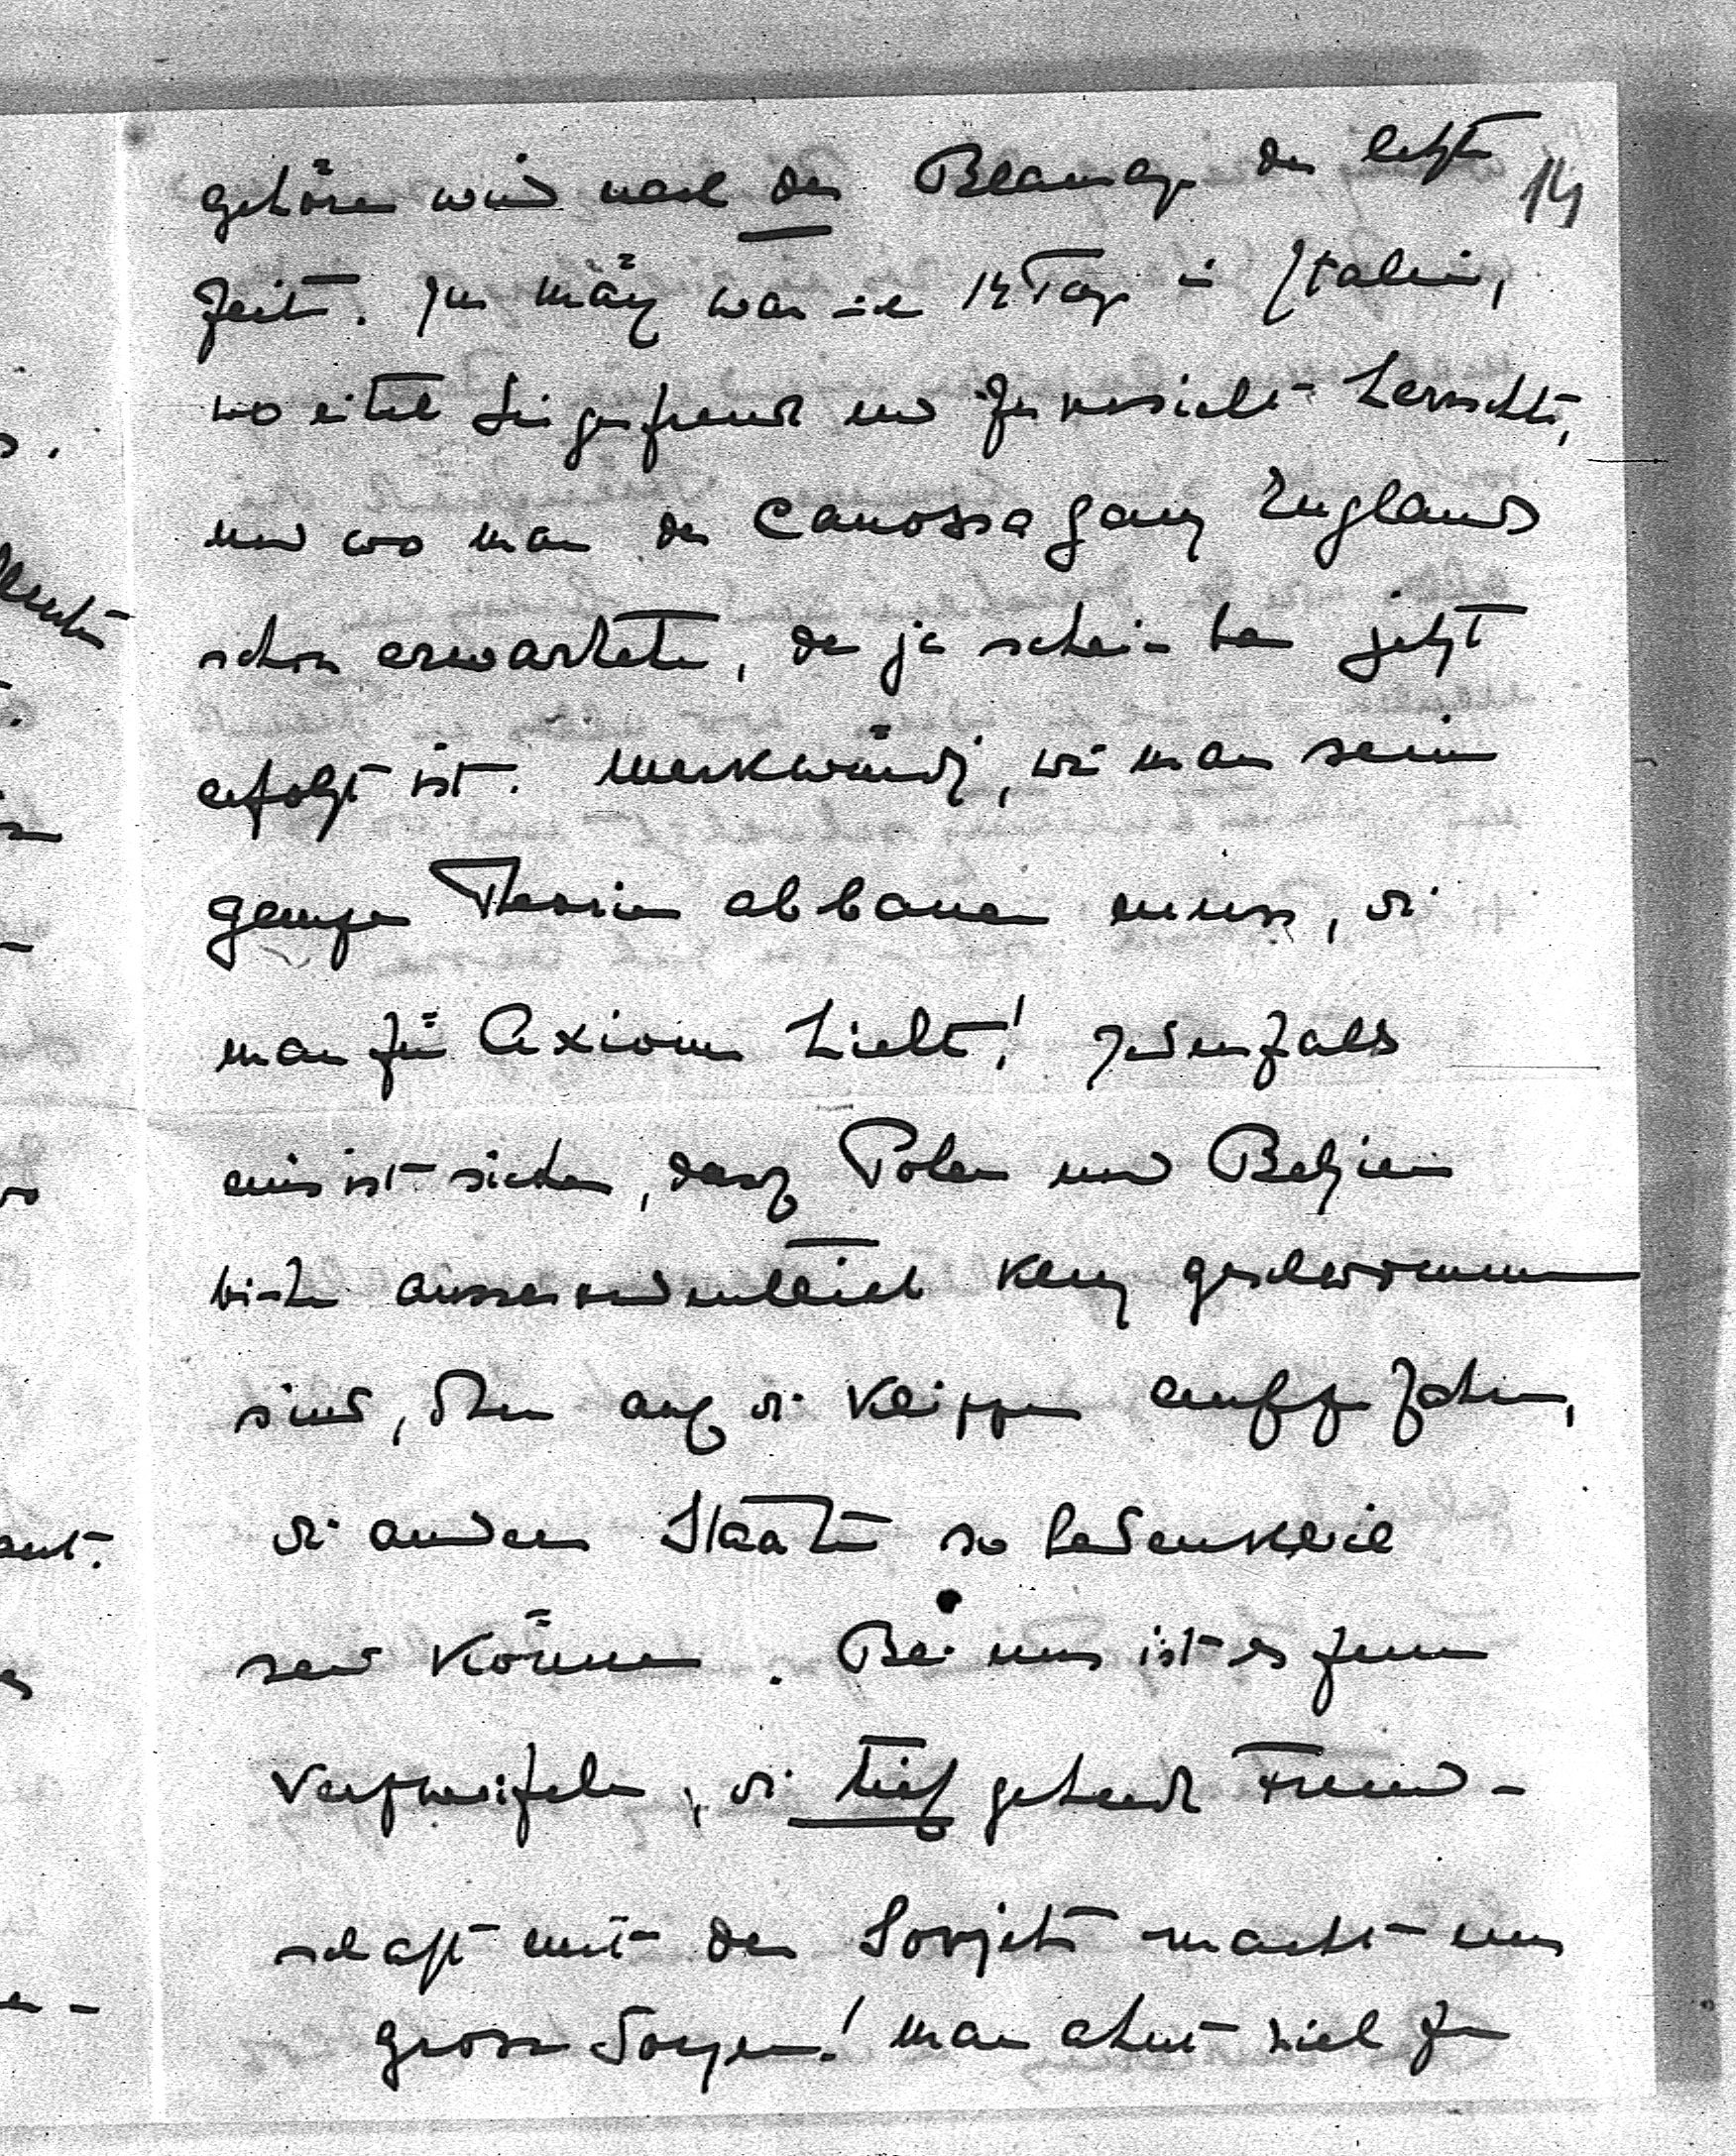 gehören wird nach der Blamage der letzten
14
Zeit. Im März war ich 14 Tage in Italien,
wo eitel Siegesfreude und Zuversicht herrschte,
und wo man den Canossagang Englands
schon erwartete, der ja scheinbar jetzt
erfolgt ist. Merkwürdig, wie man seine
ganzen Theorien abbauen muss, die
man für Axiome hielt! Jedenfalls
eins ist sicher, dass Polen und Belgien
bisher ausserordentlich klug geschwommen
sind, ohne auf die Klippen aufzufahren,
die andern Staaten so bedenklich
sein können. Bei uns ist es zum
Verzweifeln, die tief gehende Freund-
schaft mit den Sovjets macht uns
grosse Sorgen! Man ahmt viel zu